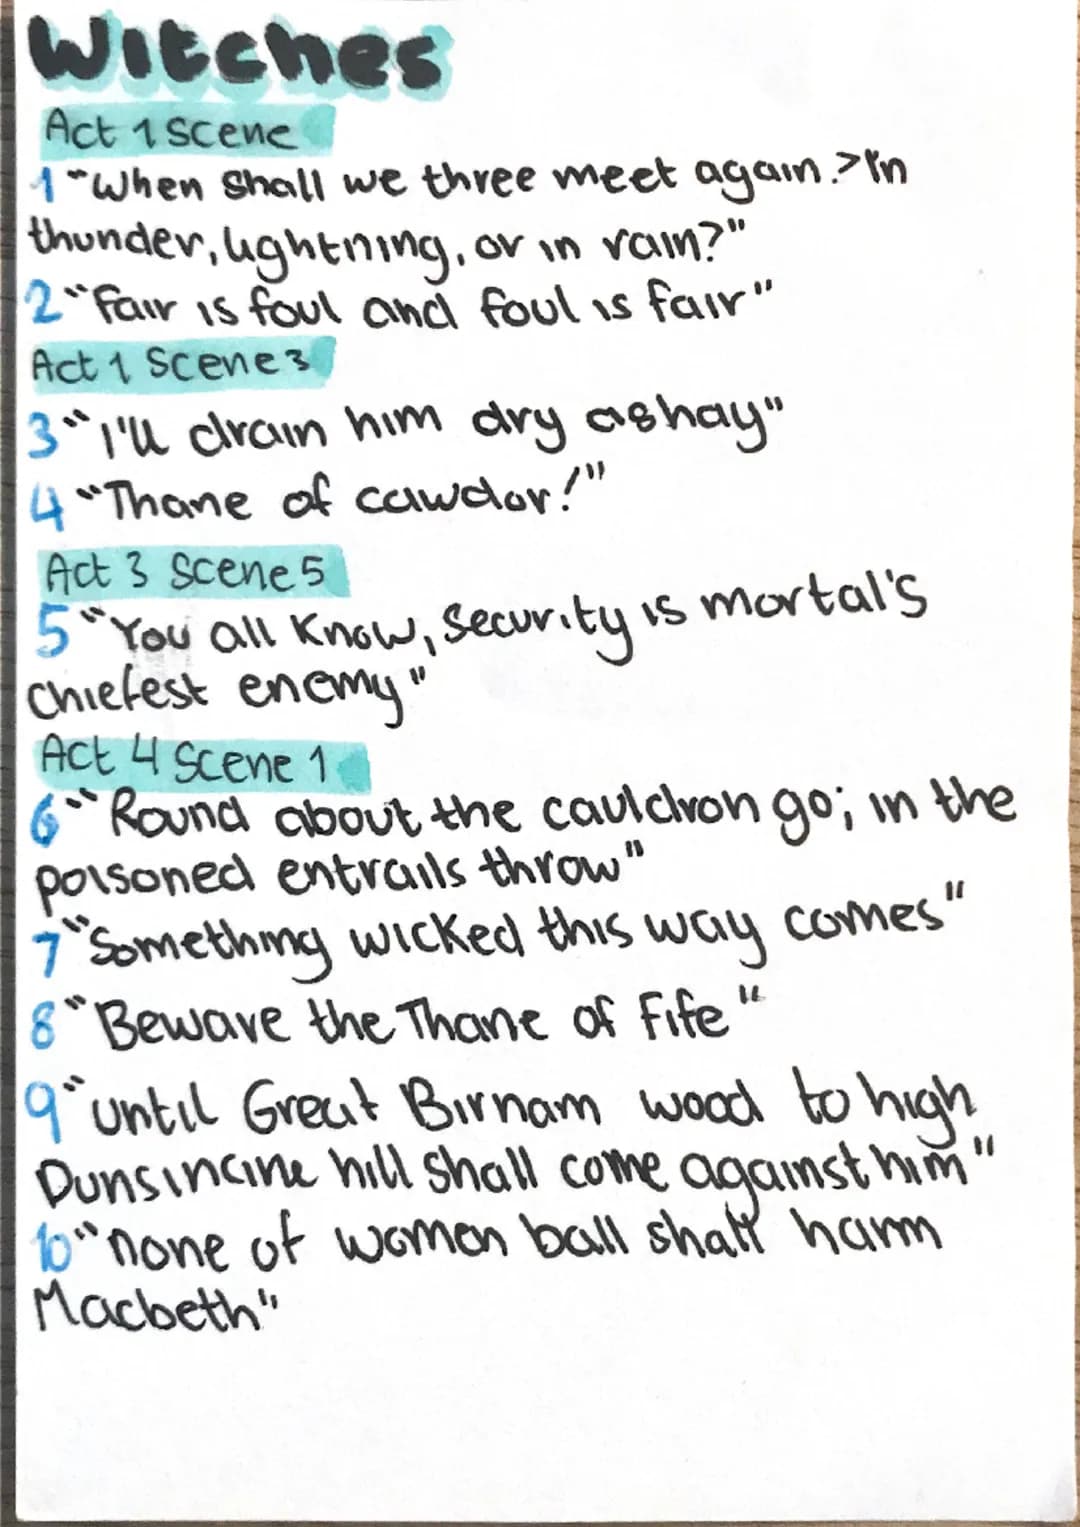 Witches
Act 1 Scene
1 "When shall we three meet again?>In
thunder, lightning, or in rain?"
2 "Fair is foul and foul is fair"
Act 1 Scene 3
3 "I'll drain him dry as hay"
4 "Thane of cawdor!"
Act 3 Scene 5
5 "You all Know, security is mortal's
chiefest enemy"
Act 4 Scene 1
6 "Round about the cauldron go; in the
poisoned entrails throw"
7 "Something wicked this way comes"
8 "Beware the Thane of Fife"
9 "until Great Birnam wood to high
Dunsincine hill shall come against him"
10 "none of women ball shall harm
Macbeth"